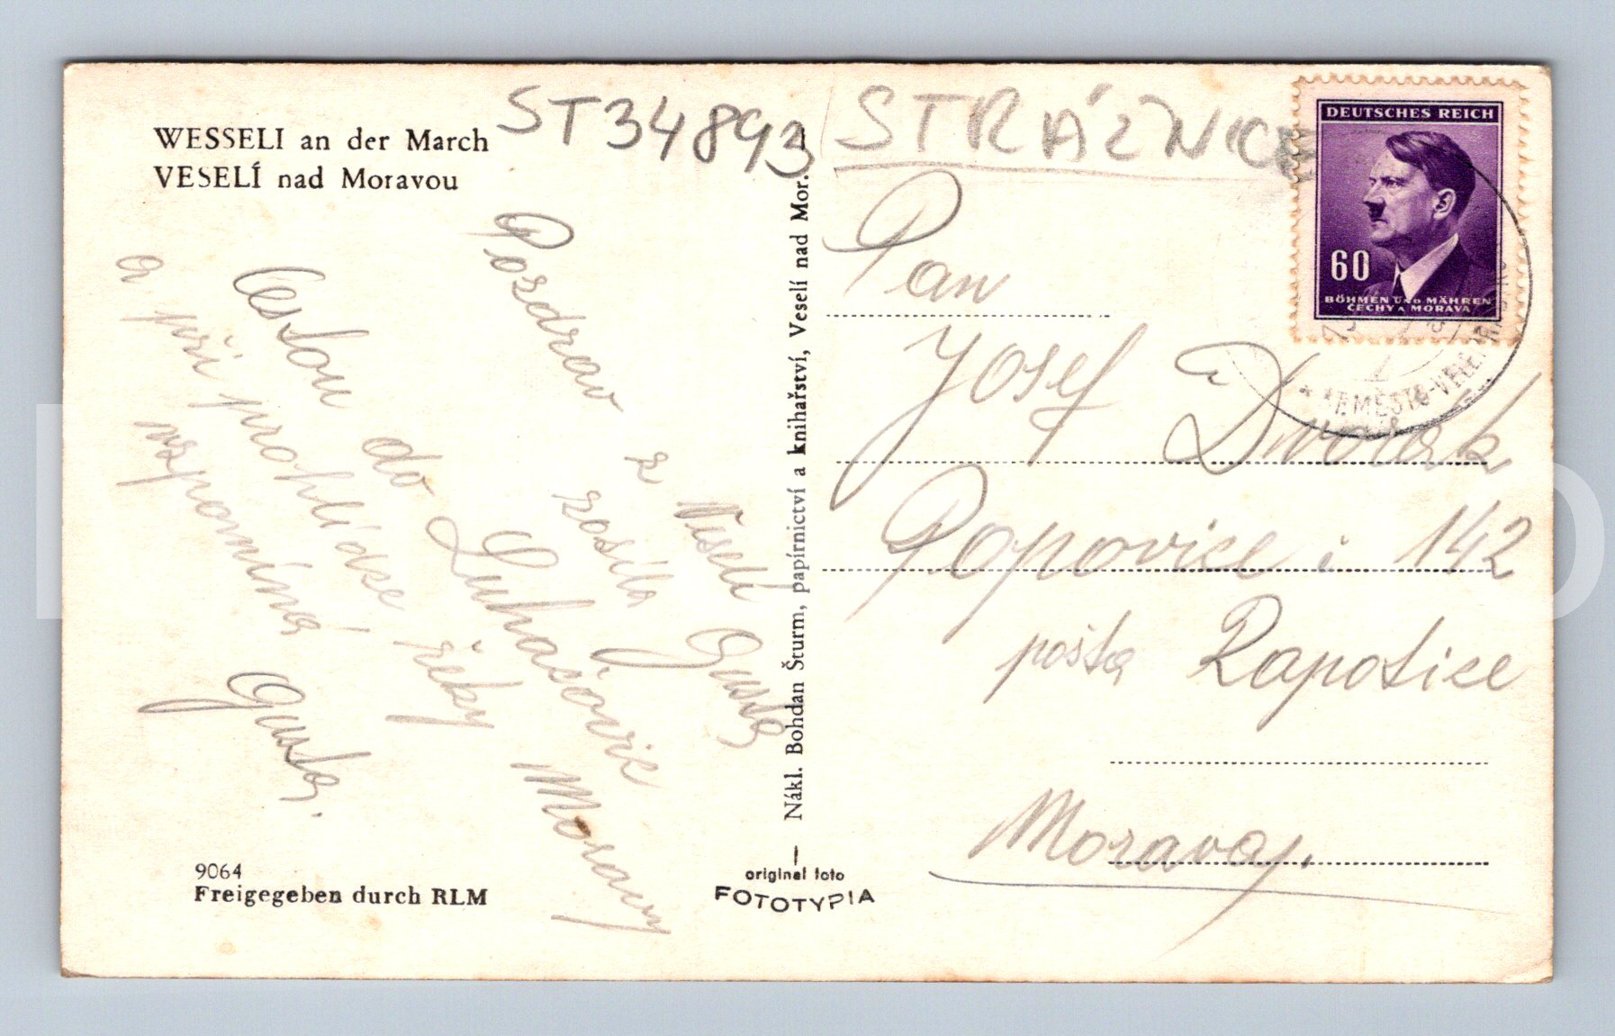 WESSELI an der March
VESELÍ nad Moravou
ST34893
STRÁŽNICE
DEUTSCHES REICH
60
BÖHMEN UND MÄHREN
ČECHY A MORAVA
Pozdrav z Veselí
zasílá Gusta
Cestou do Luhačovic
a při prohlídce řeky Moravy
vzpomíná
Gusta.
Nákl. Bohdan Šturm, papírnictví a knihařství, Veselí nad Mor.
Pan
Josef Dvořák
Popovice č 142
pošta Rapotice
Morava.
9064
Freigegeben durch RLM
original foto
FOTOTYPIA